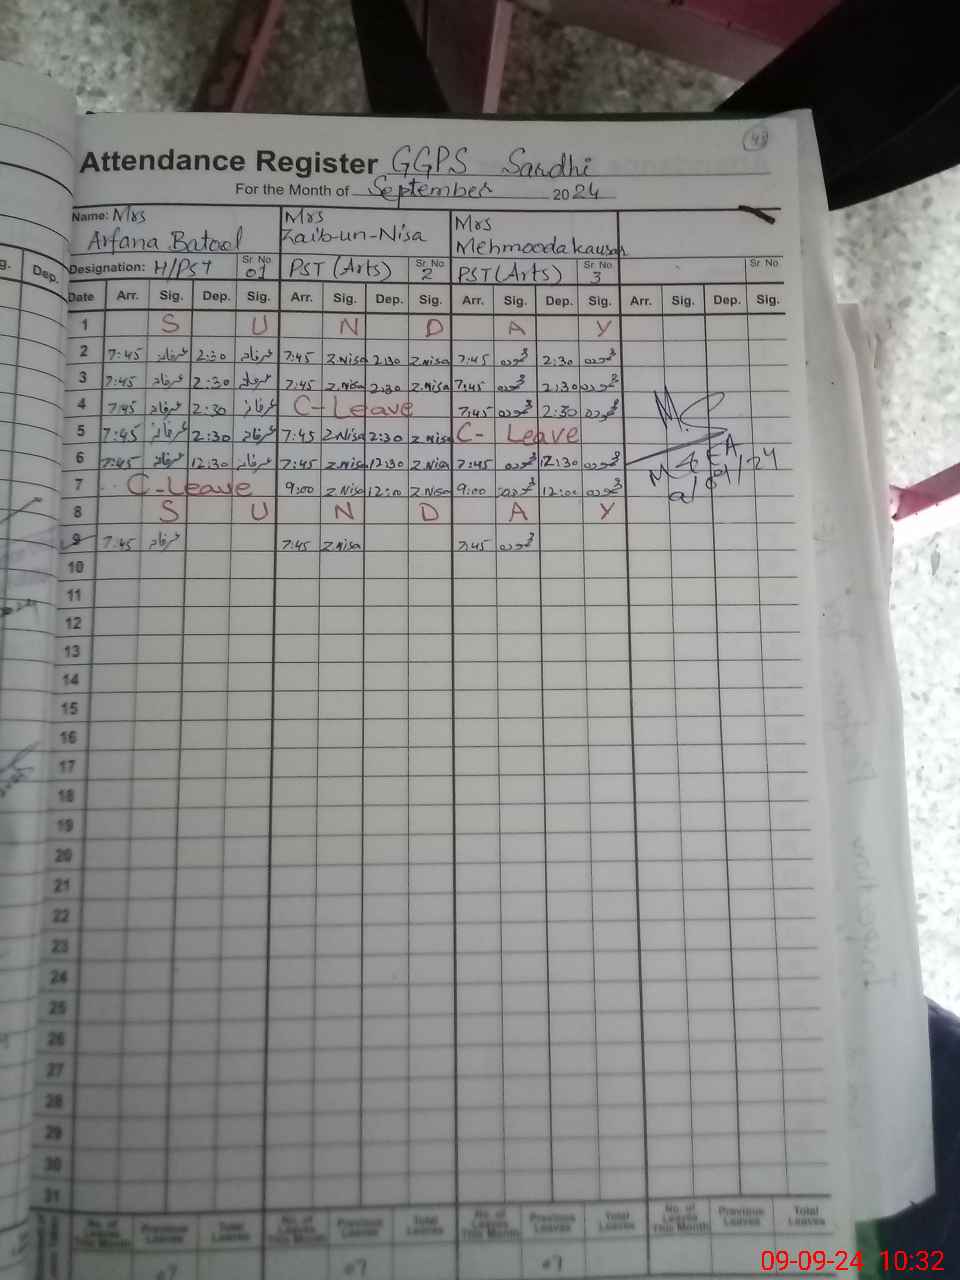 48
Attendance Register GGPS Sardhi
For the Month of September 2024
Name: Mrs Arfana Batool Mrs Zaib-un-Nisa Mrs Mehmooda kausar
Designation: H/PST Sr. No. 01 PST (Arts) Sr. No. 2 PST (Arts) Sr. No. 3 Sr. No.
Date Arr. Sig. Dep. Sig. Arr. Sig. Dep. Sig. Arr. Sig. Dep. Sig. Arr. Sig. Dep. Sig.
1 S U N D A Y
2 7:45 2:30 7:45 Z.Nisa 2:30 Z.Nisa 7:45 2:30
3 7:45 2:30 7:45 Z.Nisa 2:30 Z.Nisa 7:45 2:30
4 7:45 2:30 C-Leave 7:45 2:30
5 7:45 2:30 7:45 Z.Nisa 2:30 Z.Nisa C-Leave
6 7:45 12:30 7:45 Z.Nisa 12:30 Z.Nisa 7:45 12:30
7 C-Leave 9:00 Z.Nisa 12:00 Z.Nisa 9:00 12:00
8 S U N D A Y
9 7:45 7:45 Z.Nisa 7:45
10
11
12
13
14
15
16
17
18
19
20
21
22
23
24
25
26
27
28
29
30
31
No. of Leaves This Month Previous Leaves Total Leaves No. of Leaves This Month Previous Leaves Total Leaves No. of Leaves This Month Previous Leaves Total Leaves No. of Leaves This Month Previous Leaves Total Leaves
07 07 07
g. Dep.
09-09-24 10:32